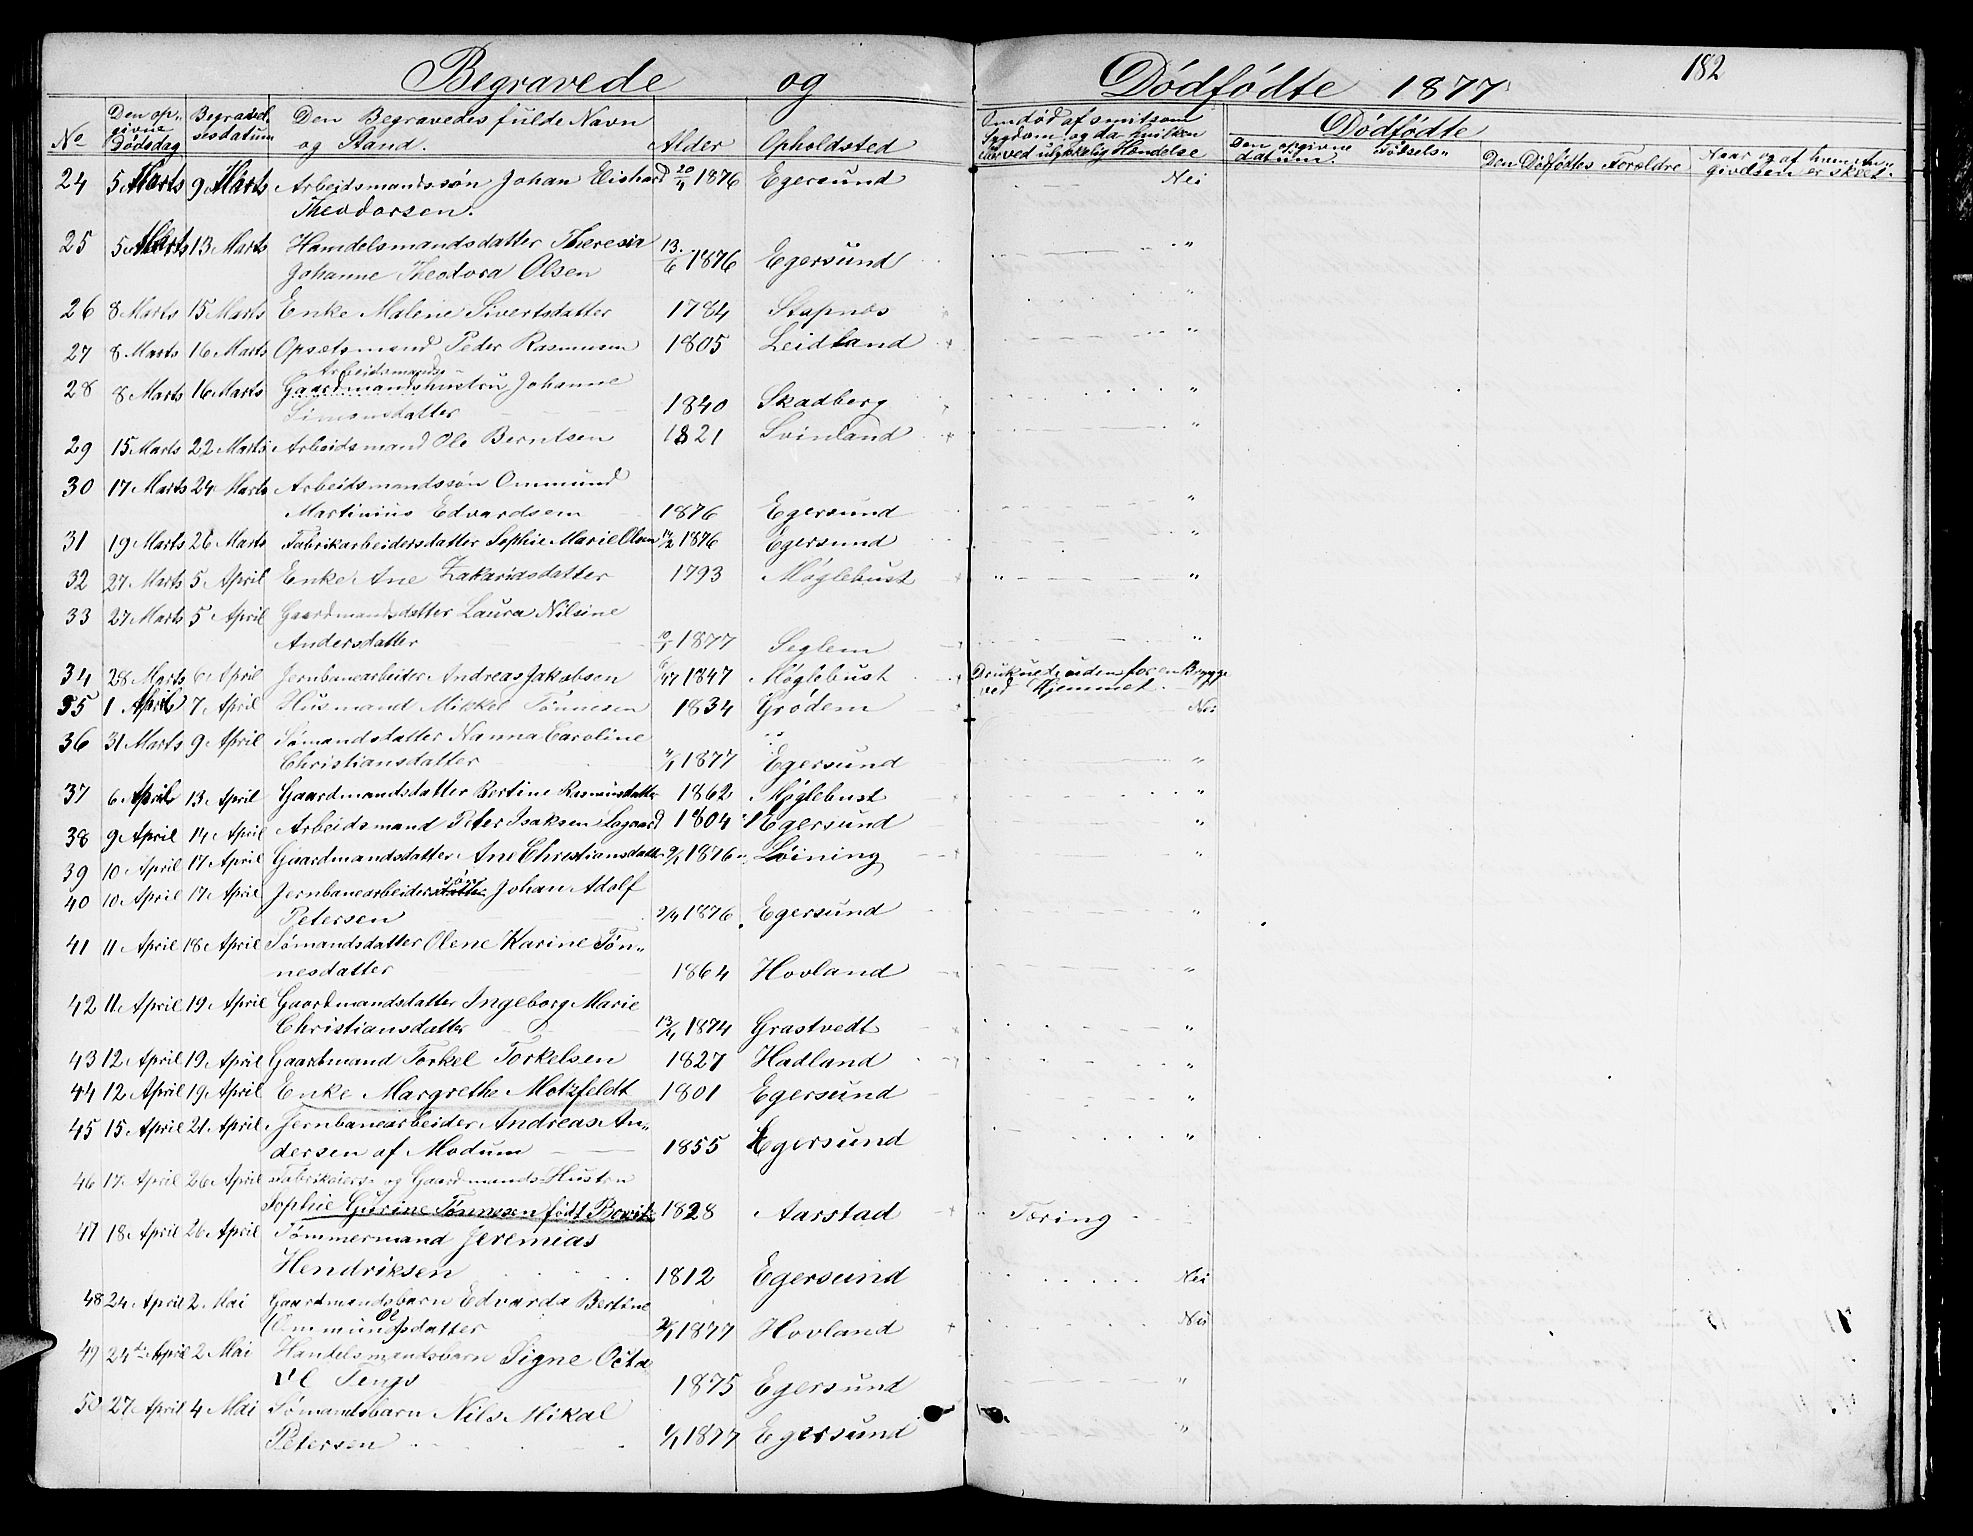 182
Begravede og Dødfødte 1877
No Den opgivne Dødsdag Begravelsesdatum Den Begravedes fulde Navn og Stand. Alder Opholdsted Om død af smitsom Sygdom og da hvilken eller ved ulykkelig Hændelse Dødfødte
Den opgivne Fødselsdatum Den Dødfødtes Forældre
24 5 Marts 9 Marts Arbeidsmandssøn Johan Elishard 20/4 1876 Egersund Nei
Theodorsen.
25 5 Marts 13 Marts Handelsmandsdatter Theresia 13/6 1876 Egersund "
Johanne Theodora Olsen
26 8 Marts 15 Marts Enke Malene Sivertsdatter 1784 Stapnes "
27 8 Marts 16 Marts Opsætsmand Peder Rasmusen 1805 Leidland "
Arbeidsmands-
28 8 Marts 16 Marts Gaardmandshustru Johanne
Simonsdatter 1840 Skadberg "
29 15 Marts 22 Marts Arbeidsmand Ole Berntsen 1821 Svinland "
30 17 Marts 24 Marts Arbeidsmandssøn Ommund
Martinius Edvardsen 1876 Egersund "
31 19 Marts 26 Marts Fabrikarbeidersdatter Sophie Marie Olsen 1876 Egersund "
32 27 Marts 5 April Enke Ane Zakariasdatter 1793 Møglebust " "
33 27 Marts 5 April Gaardmandsdatter Laura Nilsine
Andersdatter 1877 Seglem "
34 28 Marts 6 April Jernbanearbeider Andreas Jakobsen 1847 Møglebust Druknet uden for en Brygge
ved Hjemmet.
35 1 April 7 April Husmand Mikkel Tønnesen 1834 Grødem Nei
36 31 Marts 9 April Sømandsdatter Nanna Caroline
Christiansdatter 1877 Egersund "
37 6 April 13 April Gaardmandsdatter Bertine Rasmusdatter 1862 Møglebust "
38 9 April 14 April Arbeidsmand Peter Isaksen Lagaard 1804 Egersund "
39 10 April 17 April Gaardmandsdatter Ane Christiansdatter 9/1 1876 Løining
søn
40 10 April 17 April Jernbanearbeidersdatter Johan Adolf
Petersen 2/4 1876 Egersund "
41 11 April 18 April Sømandsdatter Olene Karine Tøn-
nesdatter 1864 Hovland "
42 11 April 19 April Gaardmandsdatter Ingeborg Marie
Christiansdatter 13/4 1874 Grastvedt "
43 12 April 19 April Gaardmand Torkel Torkelsen 1827 Hadland "
44 12 April 19 April Enke Margrethe Motzfeldt 1801 Egersund "
45 15 April 21 April Jernbanearbeider Andreas An-
dersen af Modum 1855 Egersund "
46 17 April 26 April Fabrikeiers- og Gaardmands Hustru
Sophie Gurine Tønnesen født 1828 Aarstad Tæring
47 18 April 26 April Tømmermand Jeremias
Hendriksen 1812 Egersund Nei
48 24 April 2 Mai Gaardmandsbarn Edvarda Bertine
Ommundsdatter 1877 Hovland Nei
49 24de April 2 Mai Handelsmandsbarn Signe Octa
ve Tengs 1875 Egersund "
50 27 April 4 Mai Sømandsbarn Nils Mikal
Petersen 1/1 1877 Egersund "